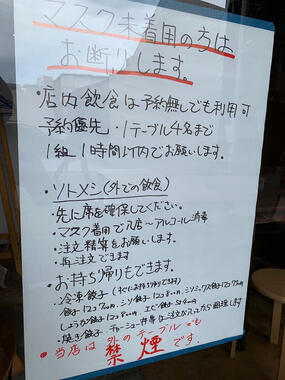 マスク未着用の方は
お断りします。
・店内飲食は予約無しでも利用可
予約優先・1テーブル4名まで
1組1時間以内でお願いします。
・ソトメシ(外での飲食)
・先に席を確保してください。
・マスク着用で入店〜アルコール消毒
・注文精算をお願いします。
・再注文できます
・お持ち帰りもできます。
・冷凍餃子(すぐにお持ち帰りできます)
しょうが餃子12コ
・焼き餃子 チャーシュー丼等は注文が入ってから調理します
・当店は外のテーブルでも
禁煙です。